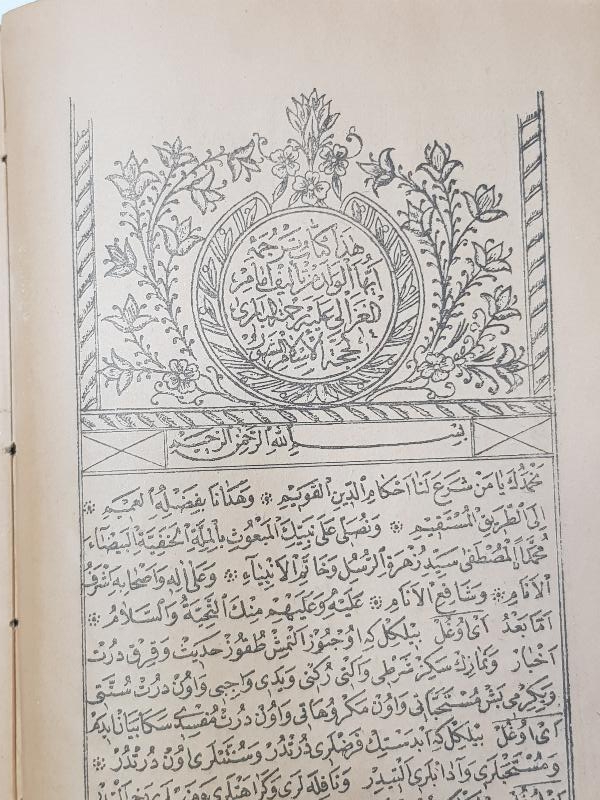 هذا كتاب ترجمة
ايها الولد من تأليف امام
الغزالى عليه رحمة البارى
لحجة الاسلام الشهير
بسم الله الرحمن الرحيم
نحمدك يا من شرع لنا احكام الدين القويم وهدانا بفضله العميم
الى الطريق المستقيم ونصلى على نبيك المبعوث بالملة الحنفية البيضاء
محمد المصطفى سيد زهرة الرسل وخاتم الانبياء وعلى اله واصحابه اشرف
الانام وشافع الانام عليه وعليهم منك التحية والسلام
اما بعد اى اوغل بيلكل كه اوچيوز التمش طقوز حديث وقرق درت
اخبار ونمازك سكز شرطى والتى ركنى ويدى واجبى واون درت سنتى
ويكرمى بش مستحباتى واون مكروهاتى واون درت مفسدى سكا بيان ايدم
اى اوغل بيلكل كه ابدستك فرضلرى درتدر وسنتلرى اون درتدر
ومستحبلرى وادابلرى التيدر ونافله لرى وكراهتلرى